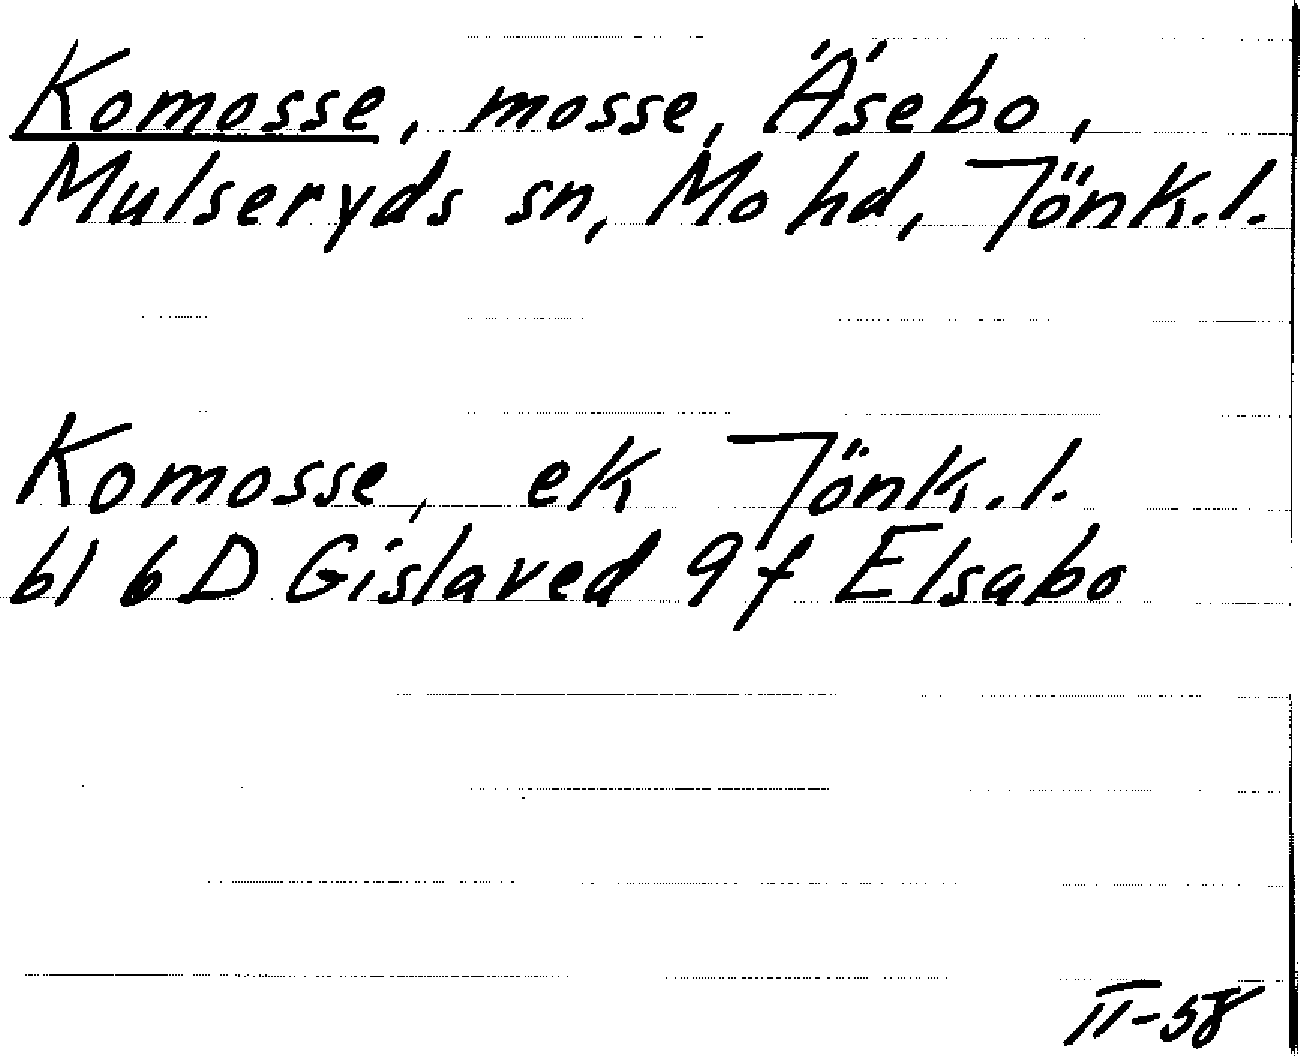 Komosse, mosse, Äsebo,
Mulseryds sn, Mo hd, Jönk.l.
Komosse, ek Jönk.l.
bl 6D Gislaved 9f Elsabo
II-58